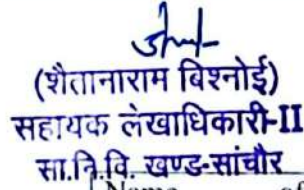 (शैतानाराम बिश्नोई)
सहायक लेखाधिकारी-II
सा.नि.वि. खण्ड-सांचौर
Name of